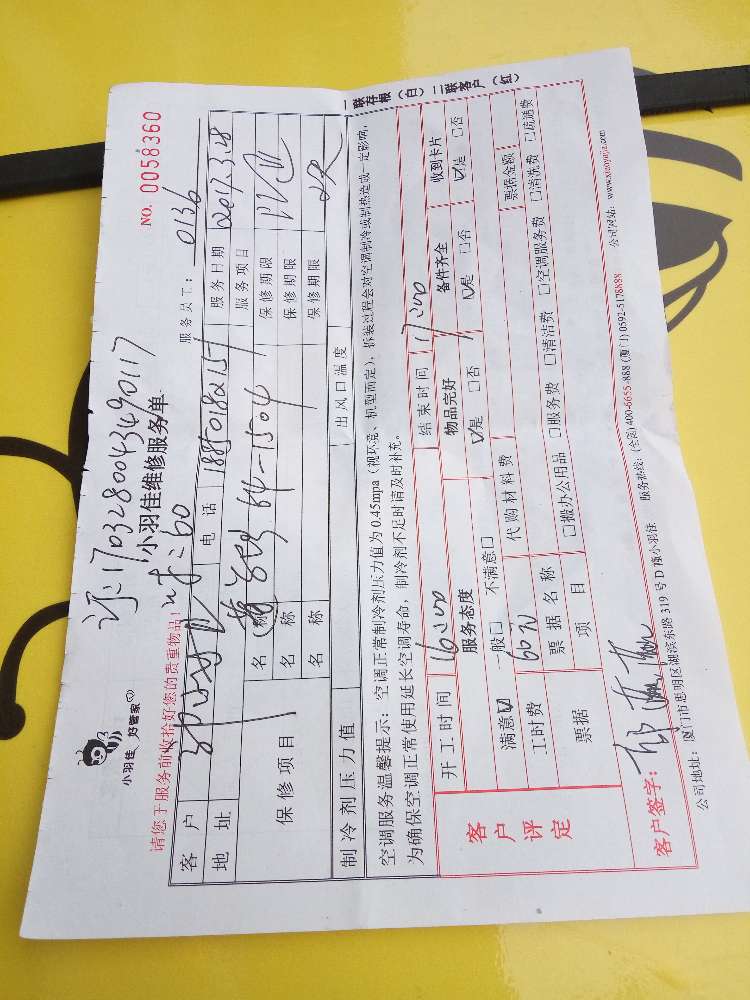 订:1703280043490117
小羽佳 好管家
小羽佳维修服务单
NO. 0058360
请您于服务前收拾好您的贵重物品!
服务员工: 0136
客户
电话 18850182157
服务日期 2017.3.28
地址
64-1504
服务项目
保修项目
名称
保修期限
名称
保修期限
名称
保修期限
制冷剂压力值
出风口温度
空调服务温馨提示:空调正常制冷剂压力值为 0.45mpa(视环境、机型而定),拆装过程会对空调制冷或制热造成一定影响,
为确保空调正常使用延长空调寿命,制冷剂不足时请及时补充。
一联存根(白)二联客户(红)
客户评定
开工时间 16:00
结束时间 17:00
服务态度
物品完好
备件齐全
收到卡片
满意☑ 一般□ 不满意□
☑是 □否
☑是 □否
☑是 □否
工时费 60元
代购材料费
票据
票据名称
票据金额
项目
□搬办公用品 □服务费 □清洁费 □空调服务费 □清洗费 □疏通费
客户签字:
公司地址:厦门市思明区湖滨东路 319 号 D 栋小羽佳
服务热线:(全国)400-6655-888 (厦门) 0592-5178888
公司网站:www.xiaoyujia.com